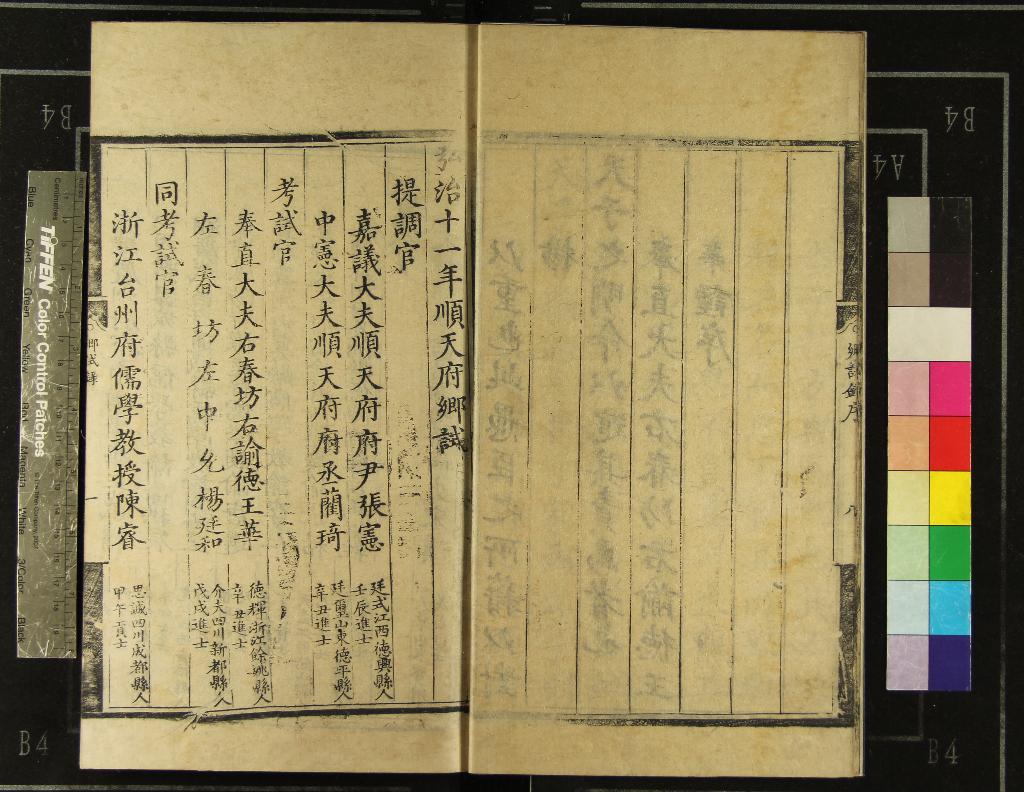 弘治十一年順天府鄉試
提調官
嘉議大夫順天府府尹張憲 廷式江西德興縣人
壬辰進士
中憲大夫順天府府丞藺琦 廷璽山東德平縣人
辛丑進士
考試官
奉直大夫右春坊右諭德王華 德輝浙江餘姚縣人
辛丑進士
左春坊左中允楊廷和 介夫四川新都縣人
戊戌進士
同考試官
浙江台州府儒學教授陳睿 思誠四川成都縣人
甲午貢士
鄉試錄
一
鄉試錄序
八
B4
B4
A4
B4
B4
TIFFEN Color Control Patches
Centimetres
Blue
Cyan
Green
Yellow
Red
Magenta
White
3/Color
Black